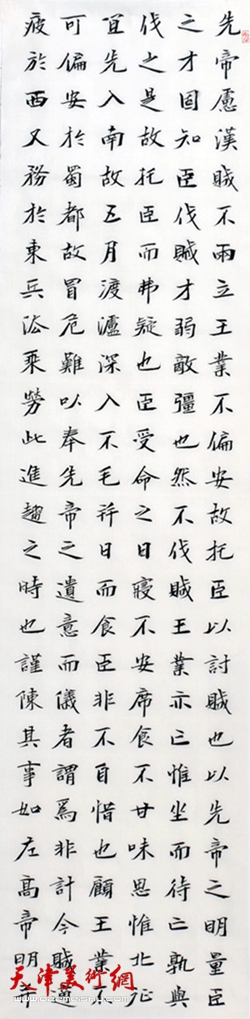 先帝慮漢賊不兩立王業不偏安故托臣以討賊也以先帝之明量臣
之才固知臣伐賊才弱敵彊也然不伐賊王業亦亡惟坐而待亡孰與
伐之是故托臣而弗疑也臣受命之日寢不安席食不甘味思惟北征
宜先入南故五月渡瀘深入不毛并日而食臣非不自惜也顧王業不
可偏安於蜀都故冒危難以奉先帝之遺意而儀者謂為非計今賊適
疲於西又務於東兵法乘勞此進趨之時也謹陳其事如左高帝明并
天津美術網